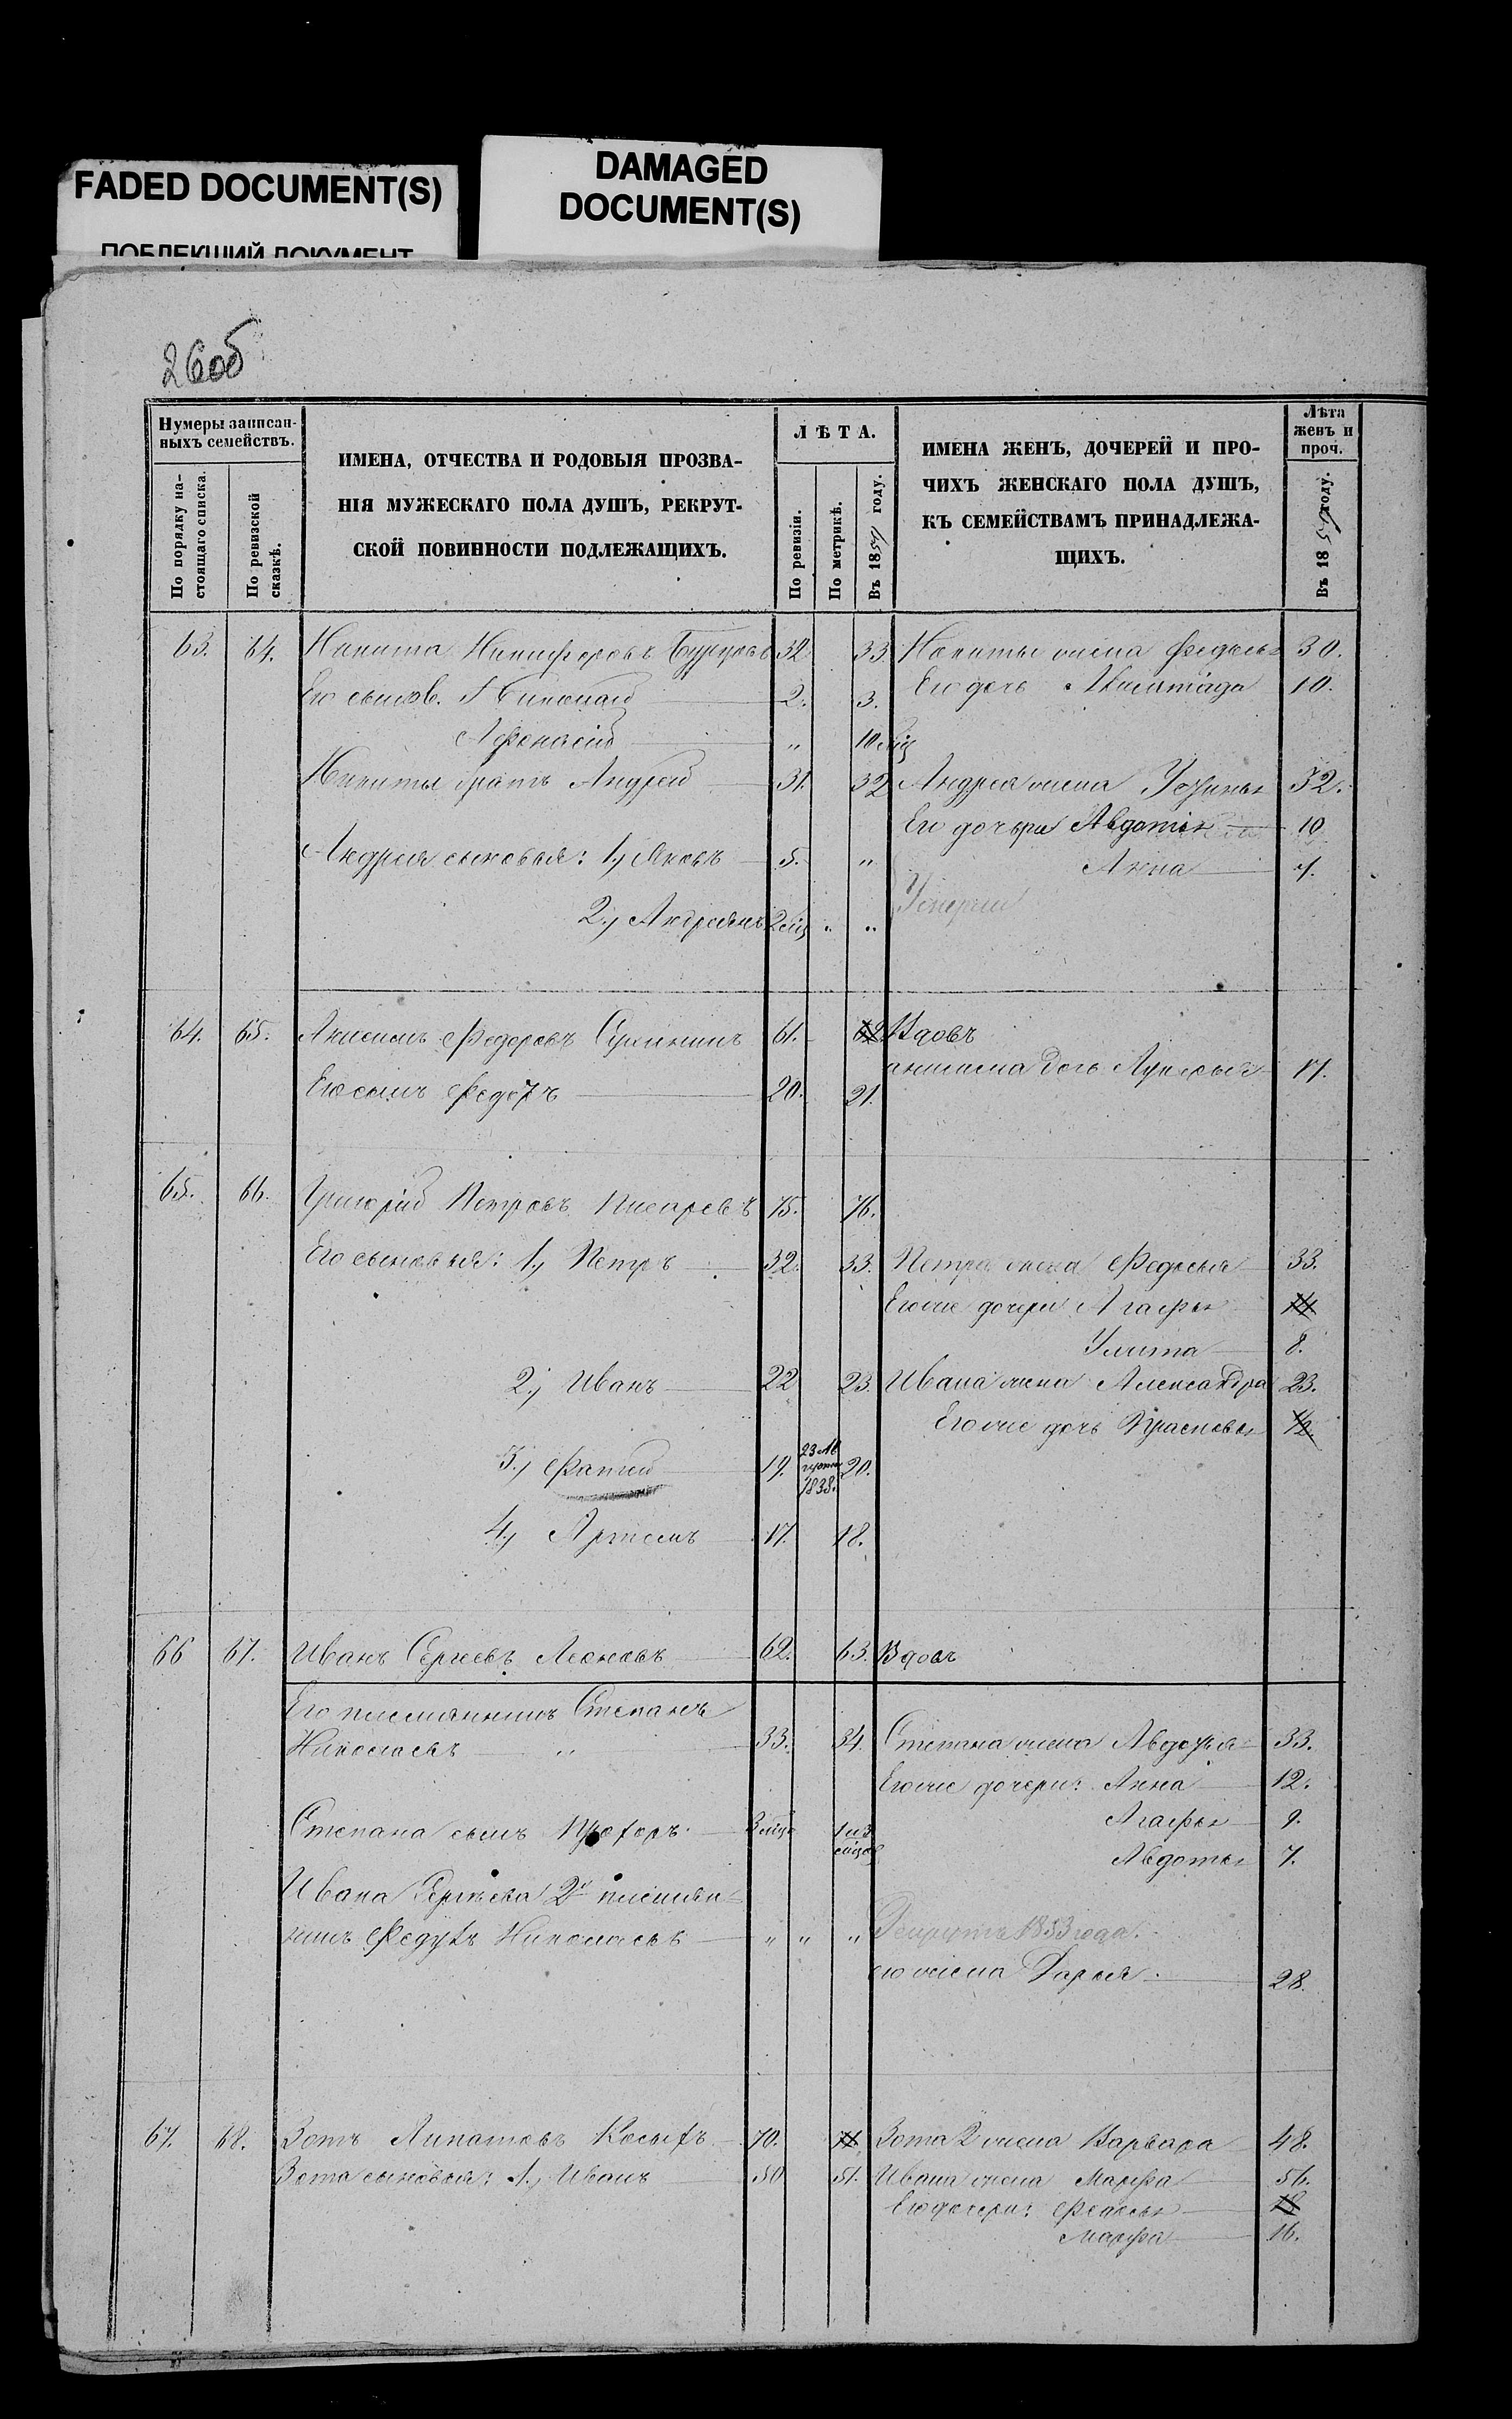 FADED DOCUMENT(S)
ПОБЛЕКШИЙ ДОКУМЕНТ
DAMAGED
DOCUMENT(S)
26об
Нумеры записан-
ныхъ семействъ.
По порядку на-
стоящаго списка.
По ревизской
сказкѣ.
ИМЕНА, ОТЧЕСТВА И РОДОВЫЯ ПРОЗВА-
НІЯ МУЖЕСКАГО ПОЛА ДУШЪ, РЕКРУТ-
СКОЙ ПОВИННОСТИ ПОДЛЕЖАЩИХЪ.
ЛѢТА.
По ревизіи.
По метрикѣ.
Въ 18 году.
ИМЕНА ЖЕНЪ, ДОЧЕРЕЙ И ПРО-
ЧИХЪ ЖЕНСКАГО ПОЛА ДУШЪ,
КЪ СЕМЕЙСТВАМЪ ПРИНАДЛЕЖА-
ЩИХЪ.
Лѣта
женъ и
проч.
Въ 18 году.
63. 64. Никита Никифоровъ 32 33. Никиты жена Федосья 30.
Его сынов. Николай 2. 3. Его дочь 10.
Афонасій " 10 мѣс
Никиты братъ Андрей 31. 32 Андрея жена Устинья 32.
Его дочери Авдотья 10
Андрея сыновья: 1, Яковъ 5. " Анна 7.
2, Андреянъ 2 мѣс " " Умерли
64. 65. Анисимъ Федоровъ 61. 62 Вдовъ
Анисима дочь Лукерья 17.
Его сынъ Федотъ 20. 21.
65. 66. Григорій Петровъ Писаревъ 75. 76.
Его сыновья: 1, Петръ 32. 33. Петра жена Федосья 33.
Его же дочери Агафья
Улита 8.
2, Иванъ 22 23. Ивана жена Александра 23.
Его же дочь Прасковья 1/2
3, Фатей 19. 23 Ав
густа
1838. 20.
4, Артемъ 17. 18.
66 67. Иванъ Сергеевъ Леоновъ 62. 63. Вдовъ
Его племянникъ Степанъ
Николаевъ " 33. 34. Степана жена Авдотья 33.
Его же дочери: Анна 12.
Степана сынъ Прохоръ 3 мѣс 1 и 3
мѣсяц Агафья 9.
Авдотья 7.
Ивана Сергѣева 2й племян
никъ Федотъ Николаевъ " " " Рекрутъ 1853 года.
его жена Дарья 28.
67. 68. Зотъ Липатовъ Косыхъ 70. 71 Зота 2 жена Варвара 48.
Зота сыновья: 1, Иванъ 50 51. Ивана жена Марфа 56.
Его дочери: Федосья 18
Марфа 16.